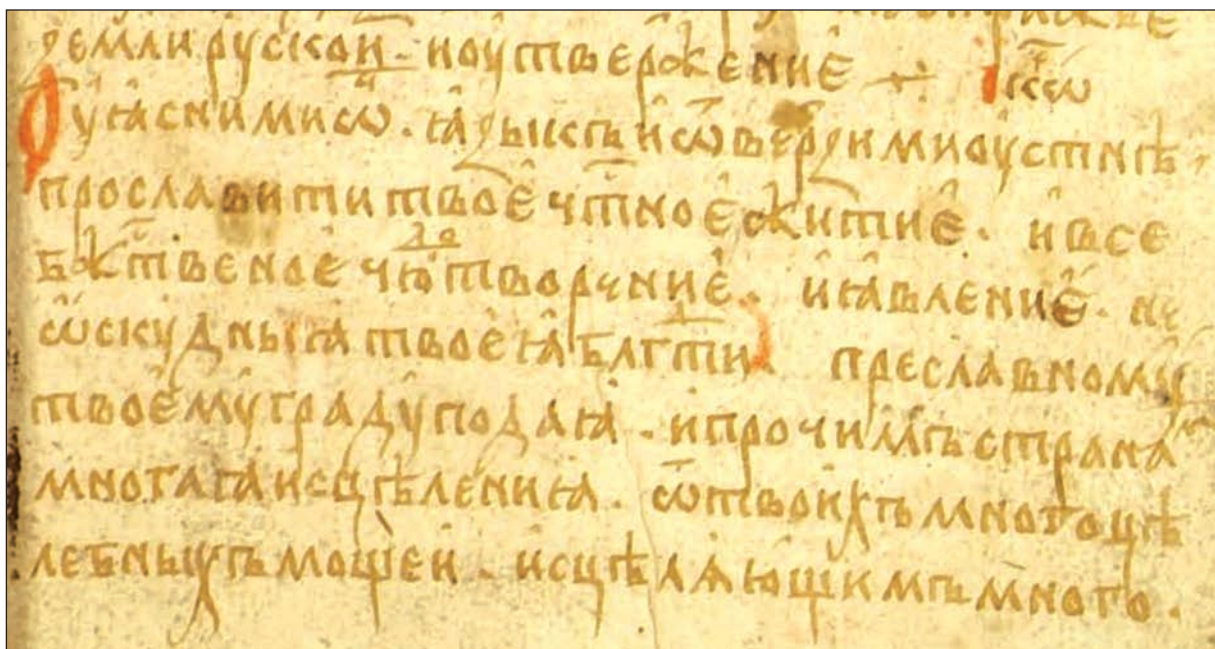 земли рускои. ноутвержение ⁘ ікѡ҃
Ѹꙗсними ѡ҃. ꙗзыкъ и ѿверзи ми оустнѣ,
прославити твое чт҃ное житие. и все
бжт҃веное чюⷣтворение. и ꙗвление. не
ѡскудныꙗ твоеꙗ блгт҃и. преславному
твоемꙋ градꙋ подаꙗ. и прочимъ странаⷨ
многаꙗ исцѣлениꙗ. ѿ твоихъ многоцѣ
лебныхъ мощеи. исцѣлѧющимъ много.